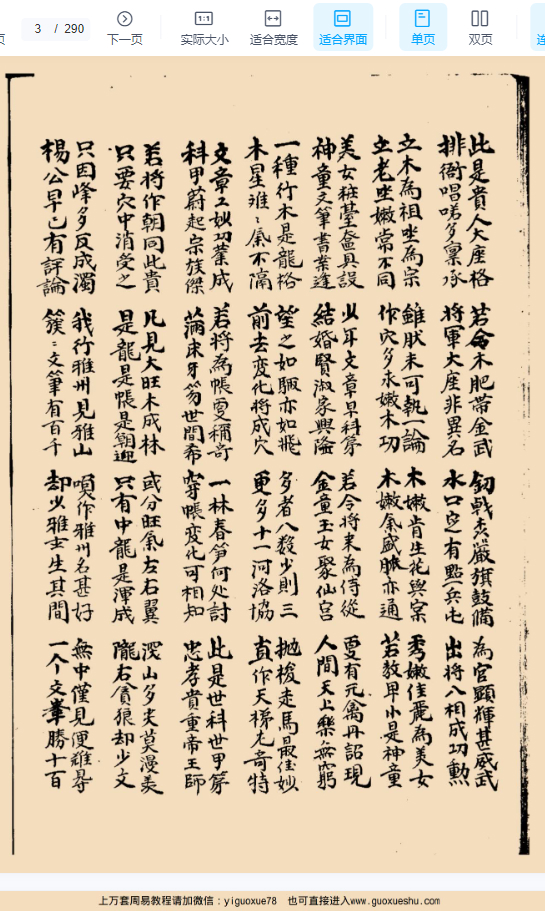 页
3 / 290
下一页
实际大小
适合宽度
适合界面
单页
双页
连
此是貴人大座格 若命木肥帶金武 釼戟森嚴旗鼓備 為官顯輝甚威武
排衙唱喏多稟承 將軍大座非異名 水口定有點兵屯 出將入相成功勲
立木為祖坐為宗 雖肰未可執一論 木嫩肯生花與案 秀嫩佳麗為美女
立老坐嫩常不同 作穴多求嫩木功 木嫩氣盛脉亦通 若教早小是神童
美女粧臺奩具設 少年文章早科第 若令將来為侍從 更有元禽丹詔現
神童文筆書業逢 結婚賢淑家興隆 金童玉女聚仙宮 人間天上樂無窮
一種行木是龍格 望之如驅亦如飛 多者八数少則三 拋梭走馬最佳妙
木星雖〻氣不隔 前去变化将成穴 更多十一河洛協 直作天梯尤奇特
文章工妙功業成 若將為帳更稱奇 一林春笋何处討 此是世科世甲第
科甲蔚起宗族傑 滿床牙笏世間希 穿帳变化可相知 忠孝貴重帝王師
若将作朝同此貴 凡見大旺木成林 或分旺氣左右翼 深山多尖莫漫羙
只要穴中消受之 是龍是帳是朝迎 只有中龍是渾成 隴右貪狼却少文
只因峰多反成濁 我行雅州見雅山 嘆作雅州名甚好 無中僅見便難尋
楊公早已有評論 簇〻文筆有百千 却少雅士生其間 一个文峯勝十百
上万套周易教程请加微信：yiguoxue78 也可直接进入www.guoxueshu.com